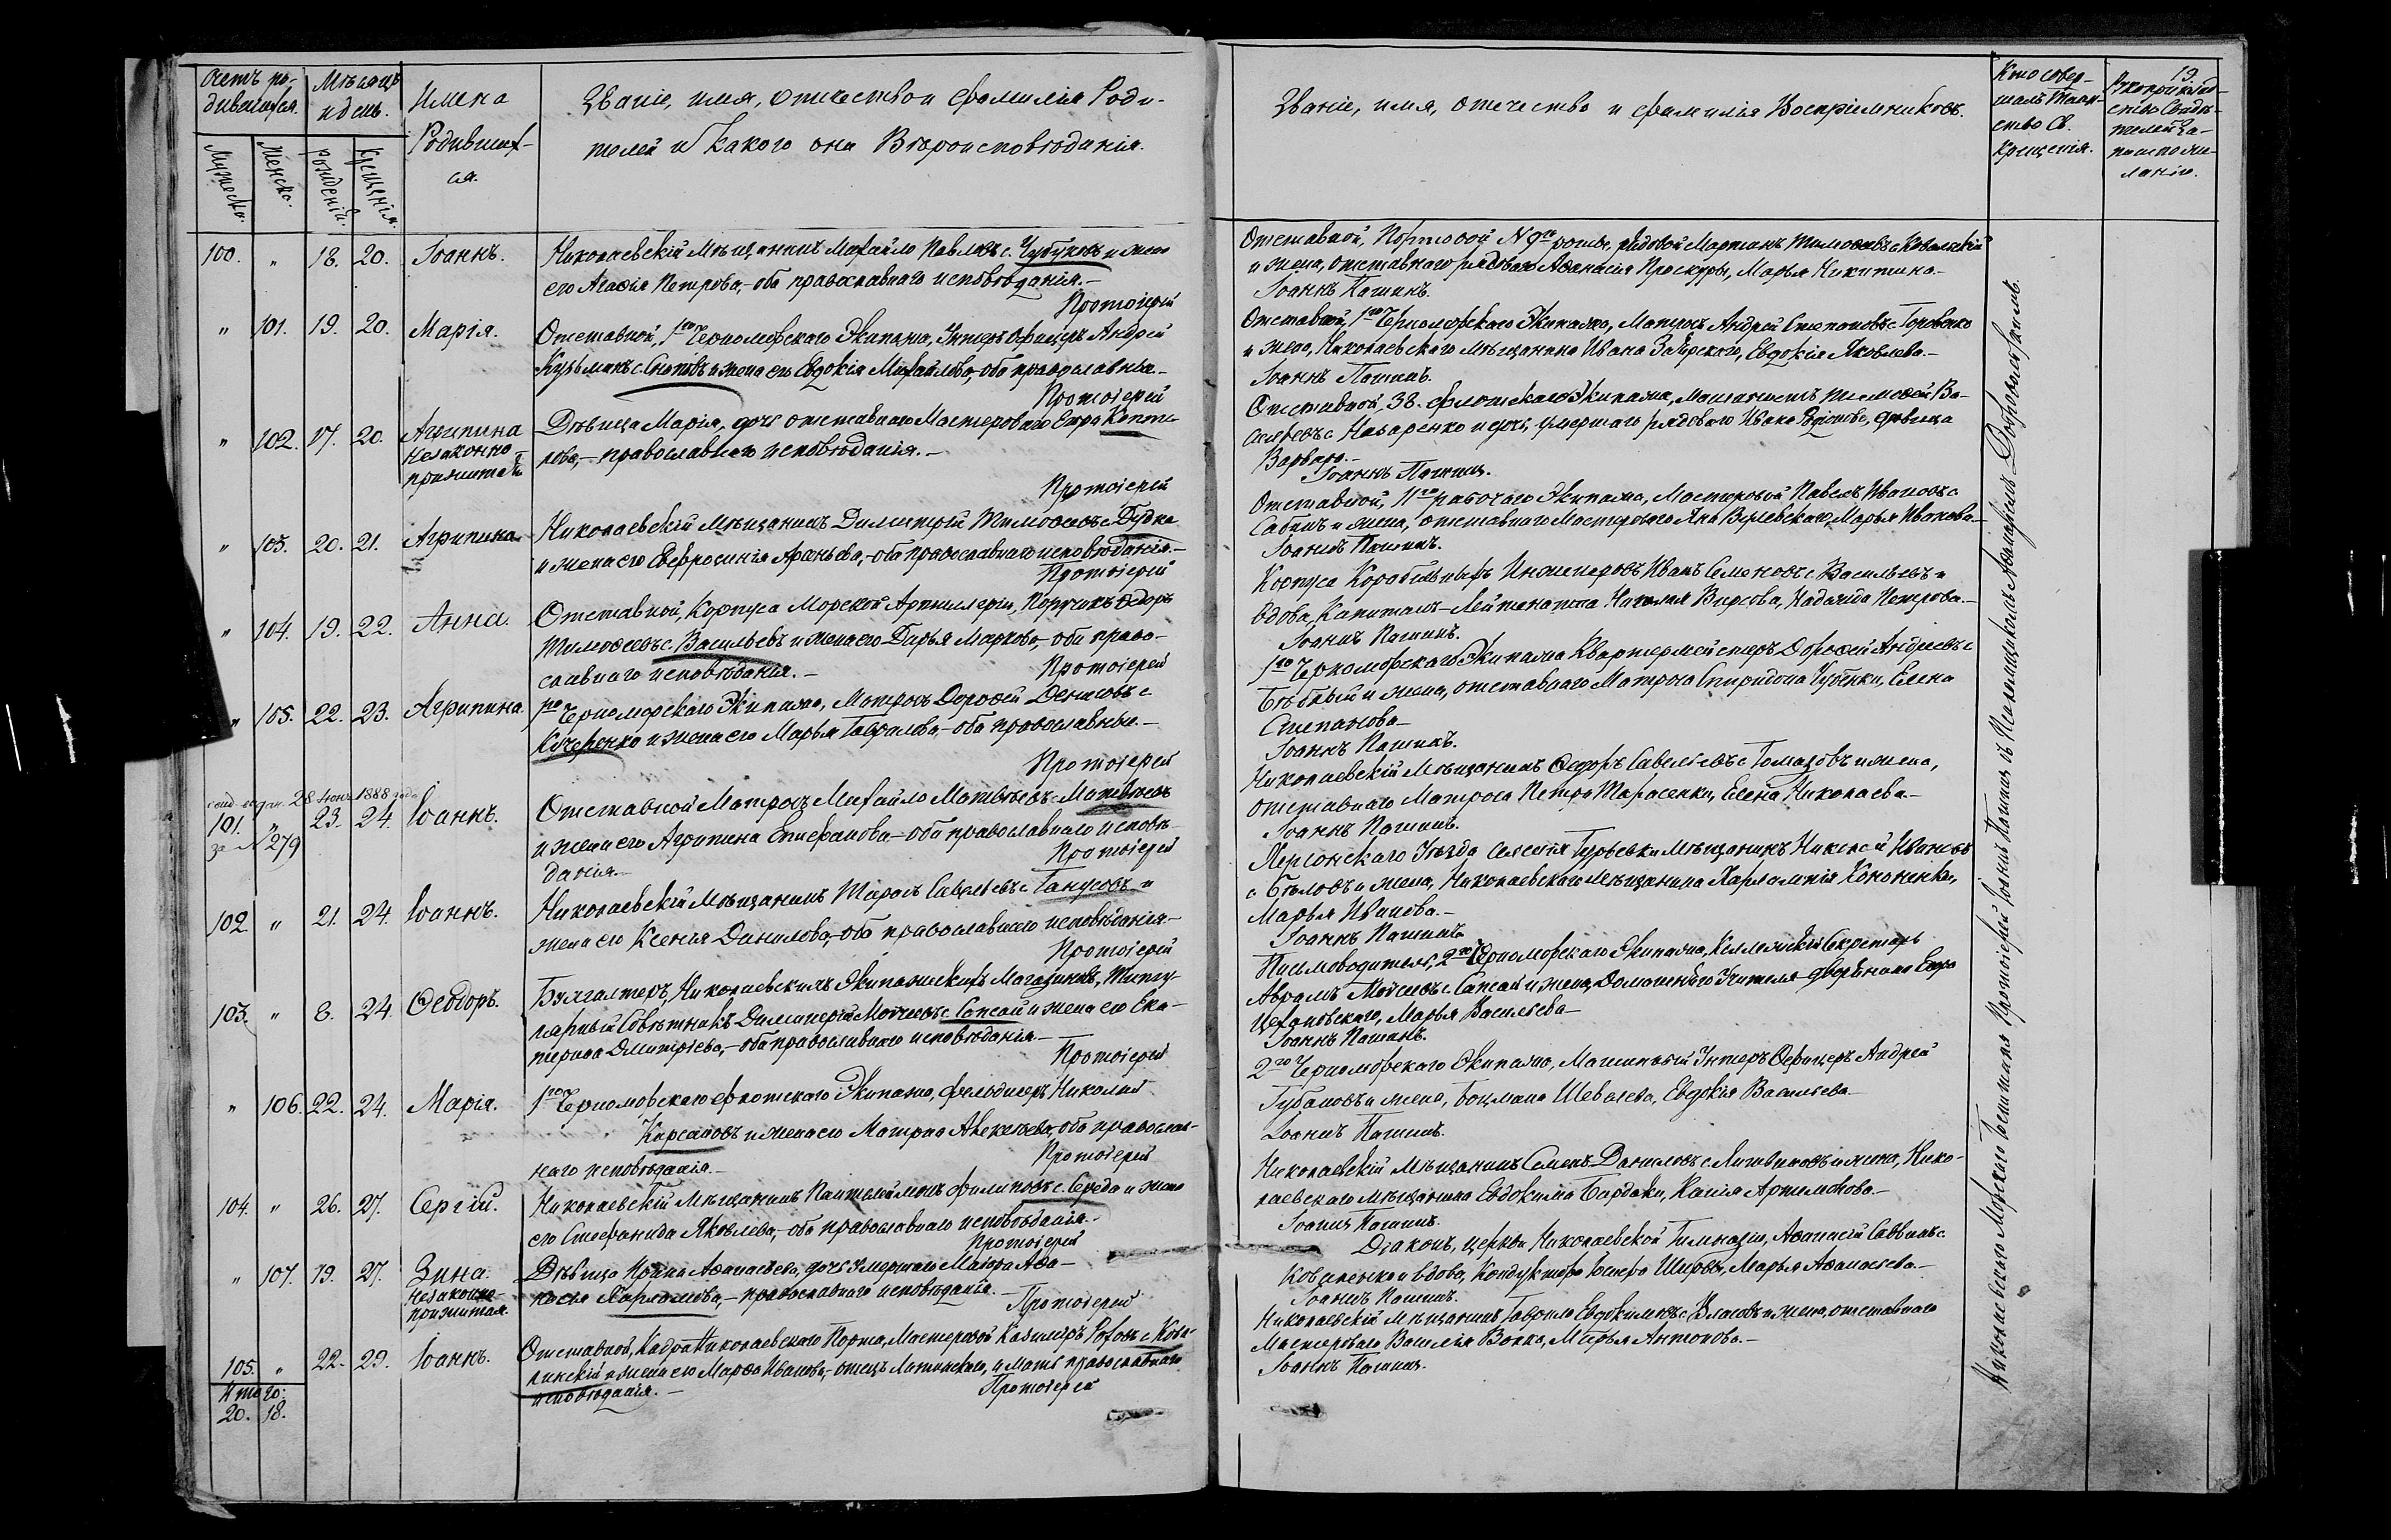 Счетъ ро-
дившихся.
Мѣсяцъ
и день.
Имена
Родивших-
ся.
Званіе, имя, отечество и фамилія Роди-
телей и Какого они Вѣроисповѣданія.
Мужеска.
Женска.
рожденій.
Крещенія.
100. " 18. 20. Іоаннъ.
Николаевскій Мѣщанинъ Михайло Павловъ с. Чубуковъ и жена
его Агафія Петрова,- оба православнаго исповѣданія.-
Протоіерей
" 101. 19. 20. Марія.
Отставной, 1го Черноморскаго Экипажа, Унтеръ Офицеръ Андрей
Кузьминъ с. и жена его Евдокія Михайлова, оба православные-
Протоіерей
" 102. 17. 20. Агрипина
Незаконно-
прижитая
Дѣвица Марія, дочь отставнаго Мастероваго Егора
рова,- православнаго исповѣданія.-
Протоіерей
" 103. 20. 21. Агрипина
Николаевскій Мѣщанинъ Димитрій Тимофеевъ с. Дудка
и жена его Евфросинія Арсеньева,- оба православнаго исповѣданія.-
Протоіерей
" 104. 19. 22. Анна.
Отставной, Корпуса Морской Артиллеріи, Поручикъ Ѳедоръ
Тимофеевъ с. Васильевъ и жена его Дарья Маркова, оба право-
славнаго исповѣданія.-
Протоіерей
" 105. 22. 23. Агрипина.
1го Черноморскаго Экипажа, Матросъ Дорофей Денисовъ с.
Кучеренко и жена его Марья Гаврилова,- оба православные.-
Протоіерей
свид. выдан. 28 Іюня 1888 года
за № 279
101. " 23. 24. Іоаннъ.
Отставной Матросъ Михайло Матвѣевъ с. Матвѣевъ
и жена его Агрипина Епифанова,- оба православнаго исповѣ-
данія.-
Протоіерей
102. " 21. 24. Іоаннъ.
Николаевскій Мѣщанинъ Тарасъ Савельевъ с. Ганусовъ и
жена его Ксенія Данилова,- оба православнаго исповѣданія-
Протоіерей
103. " 8. 24. Ѳеодоръ.
Бухгалтеръ, Николаевскихъ Экипажескихъ Магазиновъ, Титу-
лярный Совѣтникъ Димитрій Моисеевъ с. Сапсай и жена его Ека-
терина Дмитріева,- оба православнаго исповѣданія-
Протоіерей
" 106. 22. 24. Марія.
1го Черноморскаго флотскаго Экипажа, фельдшеръ Николай
Кирсановъ и жена его Матрона Алексѣева, оба православ-
наго исповѣданія.-
Протоіерей
104. " 26. 27. Сергій.
Николаевскій Мѣщанинъ Пантелеймонъ Филиповъ с. Середа и жена
его Стефанида Яковлева,- оба православнаго исповѣданія.-
Протоіерей
" 107. 19. 27. Зина.
Незаконно-
прижитая.
Дѣвица Ирина Афанасьева, дочь умершаго Маіора Афа-
насья Харламова,- православнаго исповѣданія.
Протоіерей
105. " 22. 29. Іоаннъ.
Отставной, Кадра Николаевскаго Порта, Мастеровой Казиміръ Роховъ с. Кова-
линскій и жена его Марфа Иванова,- отецъ Латинскаго, а мать православнаго
исповѣданія.-
Протоіерей
Итого:
20. 18.
Званіе, имя, отечество и фамилія Воспріемниковъ.
Кто совер-
шалъ Таин-
ство Св.
Крещенія.
19.
Рукоприклад-
ство Свидѣ-
телей за-
писи по же-
ланію.
Отставной, Портовой № 9го роты, рядовой Мартинъ Тимофеевъ с. Ковальскій
и жена, отставнаго рядоваго Афанасія Проскуры, Марья Никитина-
Іоаннъ Пашинъ.
Отставной, 1го Черноморскаго Экипажа, Матросъ Андрей Степановъ с. Горовенко
и жена, Николаевскаго мѣщанина Ивана Евдокія Яковлева.-
Іоаннъ Пашинъ.
Отставной, 38. флотскаго Экипажа, Тимофей Ва-
сильевъ с. Назаренко и дочь, умершаго рядоваго Ивана дѣвица
Варвара.-
Іоаннъ Пашинъ.
Отставной, 11го рабочаго Экипажа, Мастеровой Павелъ Ивановъ с.
Савинъ и жена, отставнаго Мастероваго Марья Иванова-
Іоаннъ Пашинъ.
Корпуса Корабельныхъ Инженеровъ Иванъ Семеновъ с. Васильевъ и
вдова, Капитанъ-Лейтенанта Николая Надежда Петрова.-
Іоаннъ Пашинъ.
1го Черноморскаго Экипажа Квартермейстеръ Дорофей Андреевъ с.
и жена, отставнаго Матроса Спиридона Чубенки, Елена
Степанова-
Іоаннъ Пашинъ.
Николаевскій Мѣщанинъ Ѳедоръ Савельевъ с. и жена,
отставнаго Матроса Петра Тарасенки, Елена Николаева.-
Іоаннъ Пашинъ.
Херсонскаго Уѣзда Селенія Гурьевки Мѣщанинъ Николай Ивановъ
с. Бѣловъ и жена, Николаевскаго мѣщанина Харлампія Кононенки,
Марья Иванова.-
Іоаннъ Пашинъ
Письмоводитель, 2го Черноморскаго Экипажа, Коллежскій Секретарь
Авраамъ Моисеевъ с. Сапсай и жена, Домашняго Учителя дворянина Егора
Цехановскаго, Марья Васильева-
Іоаннъ Пашинъ.
2го Черноморскаго Экипажа, Машинный Унтеръ Офицеръ Андрей
Губановъ и жена, Боцмана Шевалева, Евдокія Васильева-
Іоаннъ Пашинъ.
Николаевскій Мѣщанинъ Семенъ Даниловъ с. Литвиновъ и жена, Нико-
лаевскаго мѣщанина Евдокима Бардаки, Артемонова.-
Іоаннъ Пашинъ.
Діаконъ, церкви Николаевской Гимназіи, Афанасій Саввинъ с.
Коваленко и вдова, Кондуктора Марья Афанасьева.-
Іоаннъ Пашинъ.
Николаевскій Мѣщанинъ Гаврило Евдокимовъ с. Власовъ и жена, отставнаго
Мастероваго Василія Волка, Марья Антонова.-
Іоаннъ Пашинъ.
Николаевскаго Морскаго Госпиталя Протоіерей Іоаннъ Пашинъ съ Псаломщикомъ Доброволь